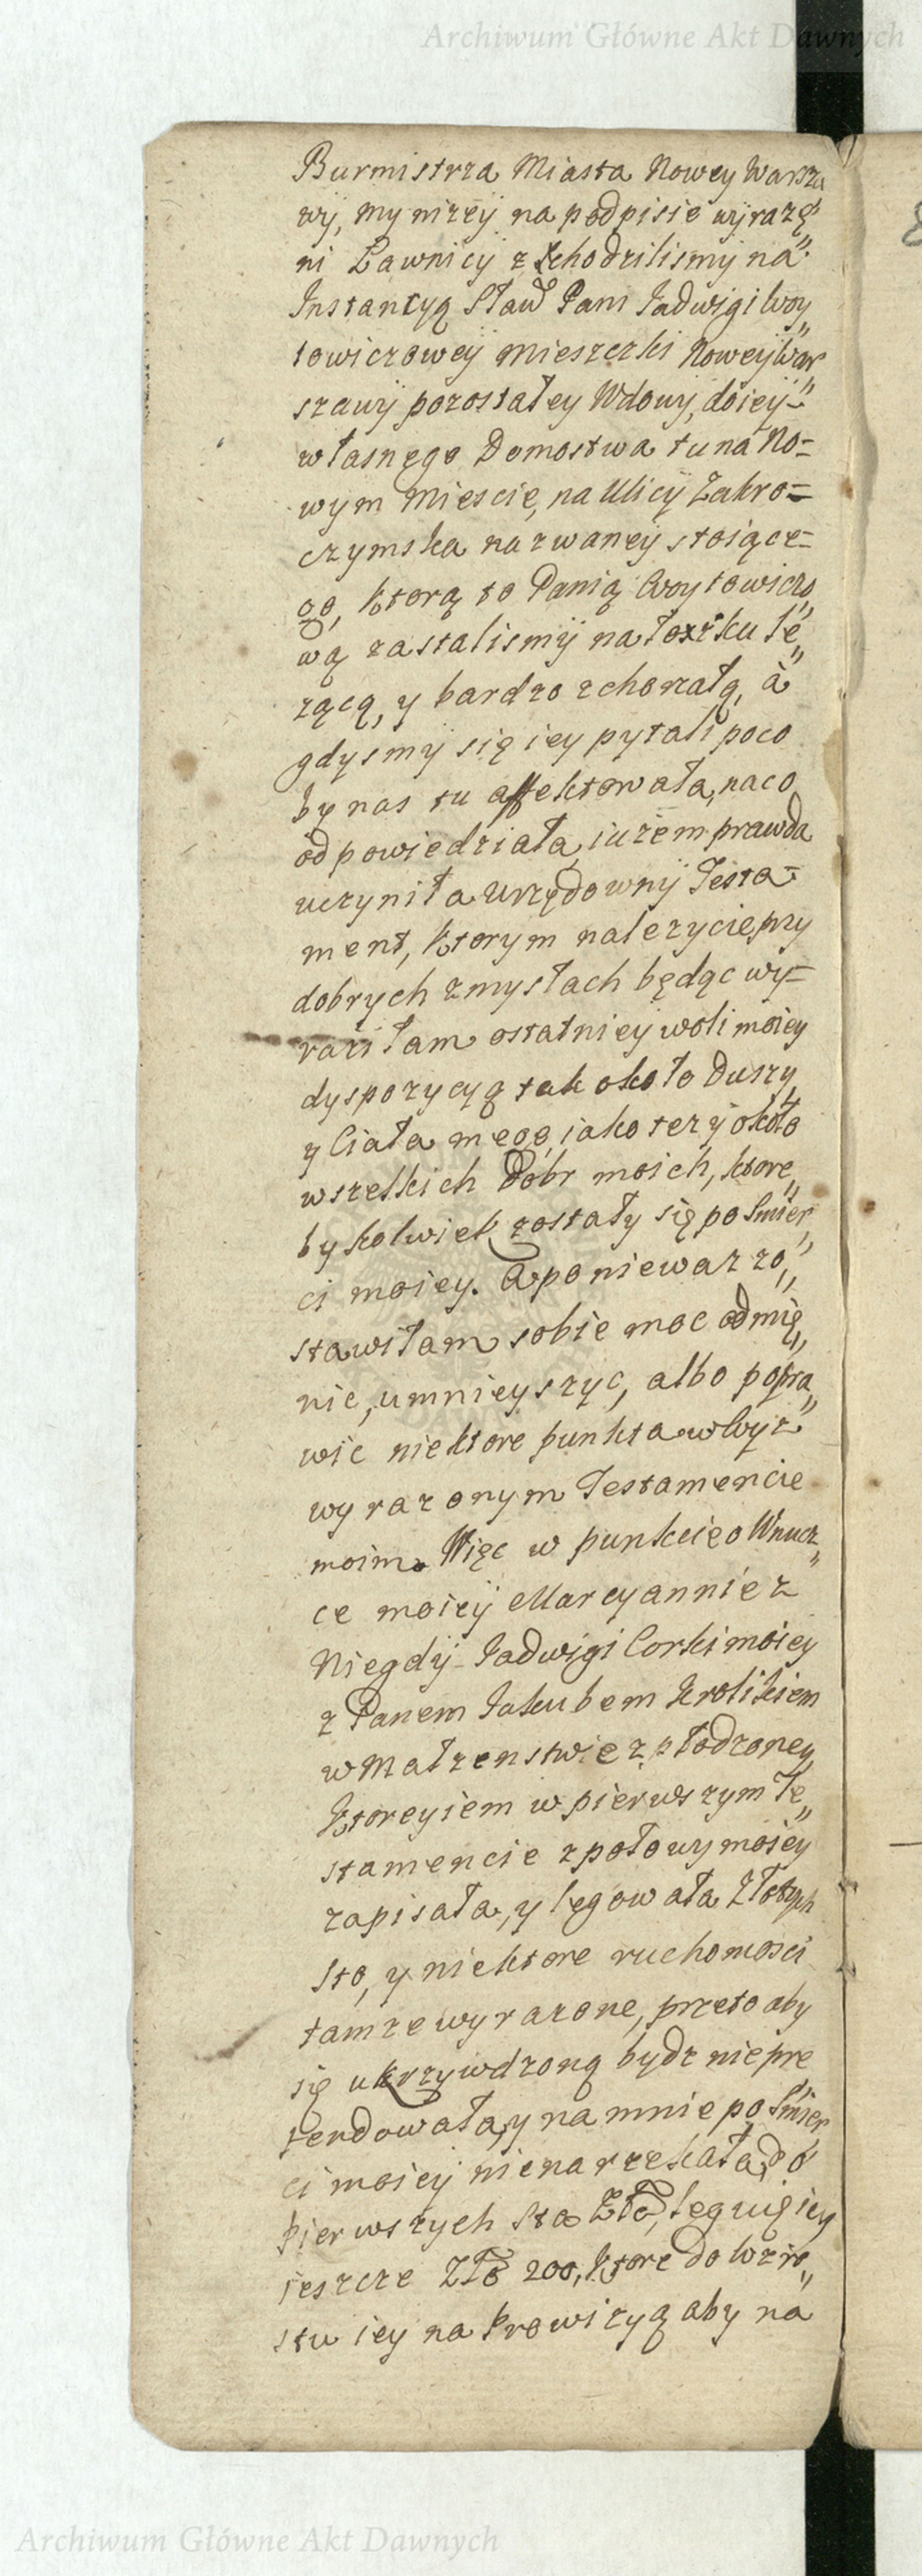 Archiwum Główne Akt Dawnych
Burmistrza Miasta Nowey Warsza
wy, my niżey na podpisie wyrażę„
ni Ławnicy zchodzilismy na„
Instancyą Sław Pani Jadwigi Woy„
towiczowey Mieszczki Nowey War„
szawy pozostałey Wdowy, do iey=
własnego Domostwa tu na No=
wym Miescie, na Ulicy Zakro=
czymska nazwaney stoiące=
go, którą to Panią Woytowiczo„
wą zastalismy na łożku le„
żącą, y bardzo zchorzałą, à
gdysmy się iey pytali poco
by nas tu affektowała, naco
odpowiedziała, iużem prawda
uczyniła Urzędowny Testa=
ment, ktorym należycie przy
dobrych zmysłach będąc wy=
raziłam ostatniey woli moiey
dyspozycyą tak około Duszy
y Ciała mego, iako też y około
wszelkich Dobr moich, ktore„
bykolwiek zostały się po Smier„
ci moiey. A poniewaz zo„
stawiłam sobie moc odmię„
nic, umnieyszyc, albo popra„
wic niektore punkta w Wyż„
wyrazonym Testamencie
moim. Więc w punkcie o Wnucz„
ce moiey Maryannie z
Niegdy Jadwigi Corki moiey
z Panem Jakubem Krolikiem
w Małzenstwie zpłodzoney
ktoreyiem w pierwszym Te„
stamencie z połowy moiey
zapisała, y legowała Złotych
Sto, y niektore ruchomosci
tamze wyrazone, przeto aby
się ukrzywdzoną bydz niepre„
tendowała, y na mnie po Smier„
ci moiey nienarzekała, do
pierwszych Sta Złł, leguię iey
ieszcze Złł 200, ktore do Wzro„
stu iey na Prowizyą aby na
Archiwum Główne Akt Dawnych